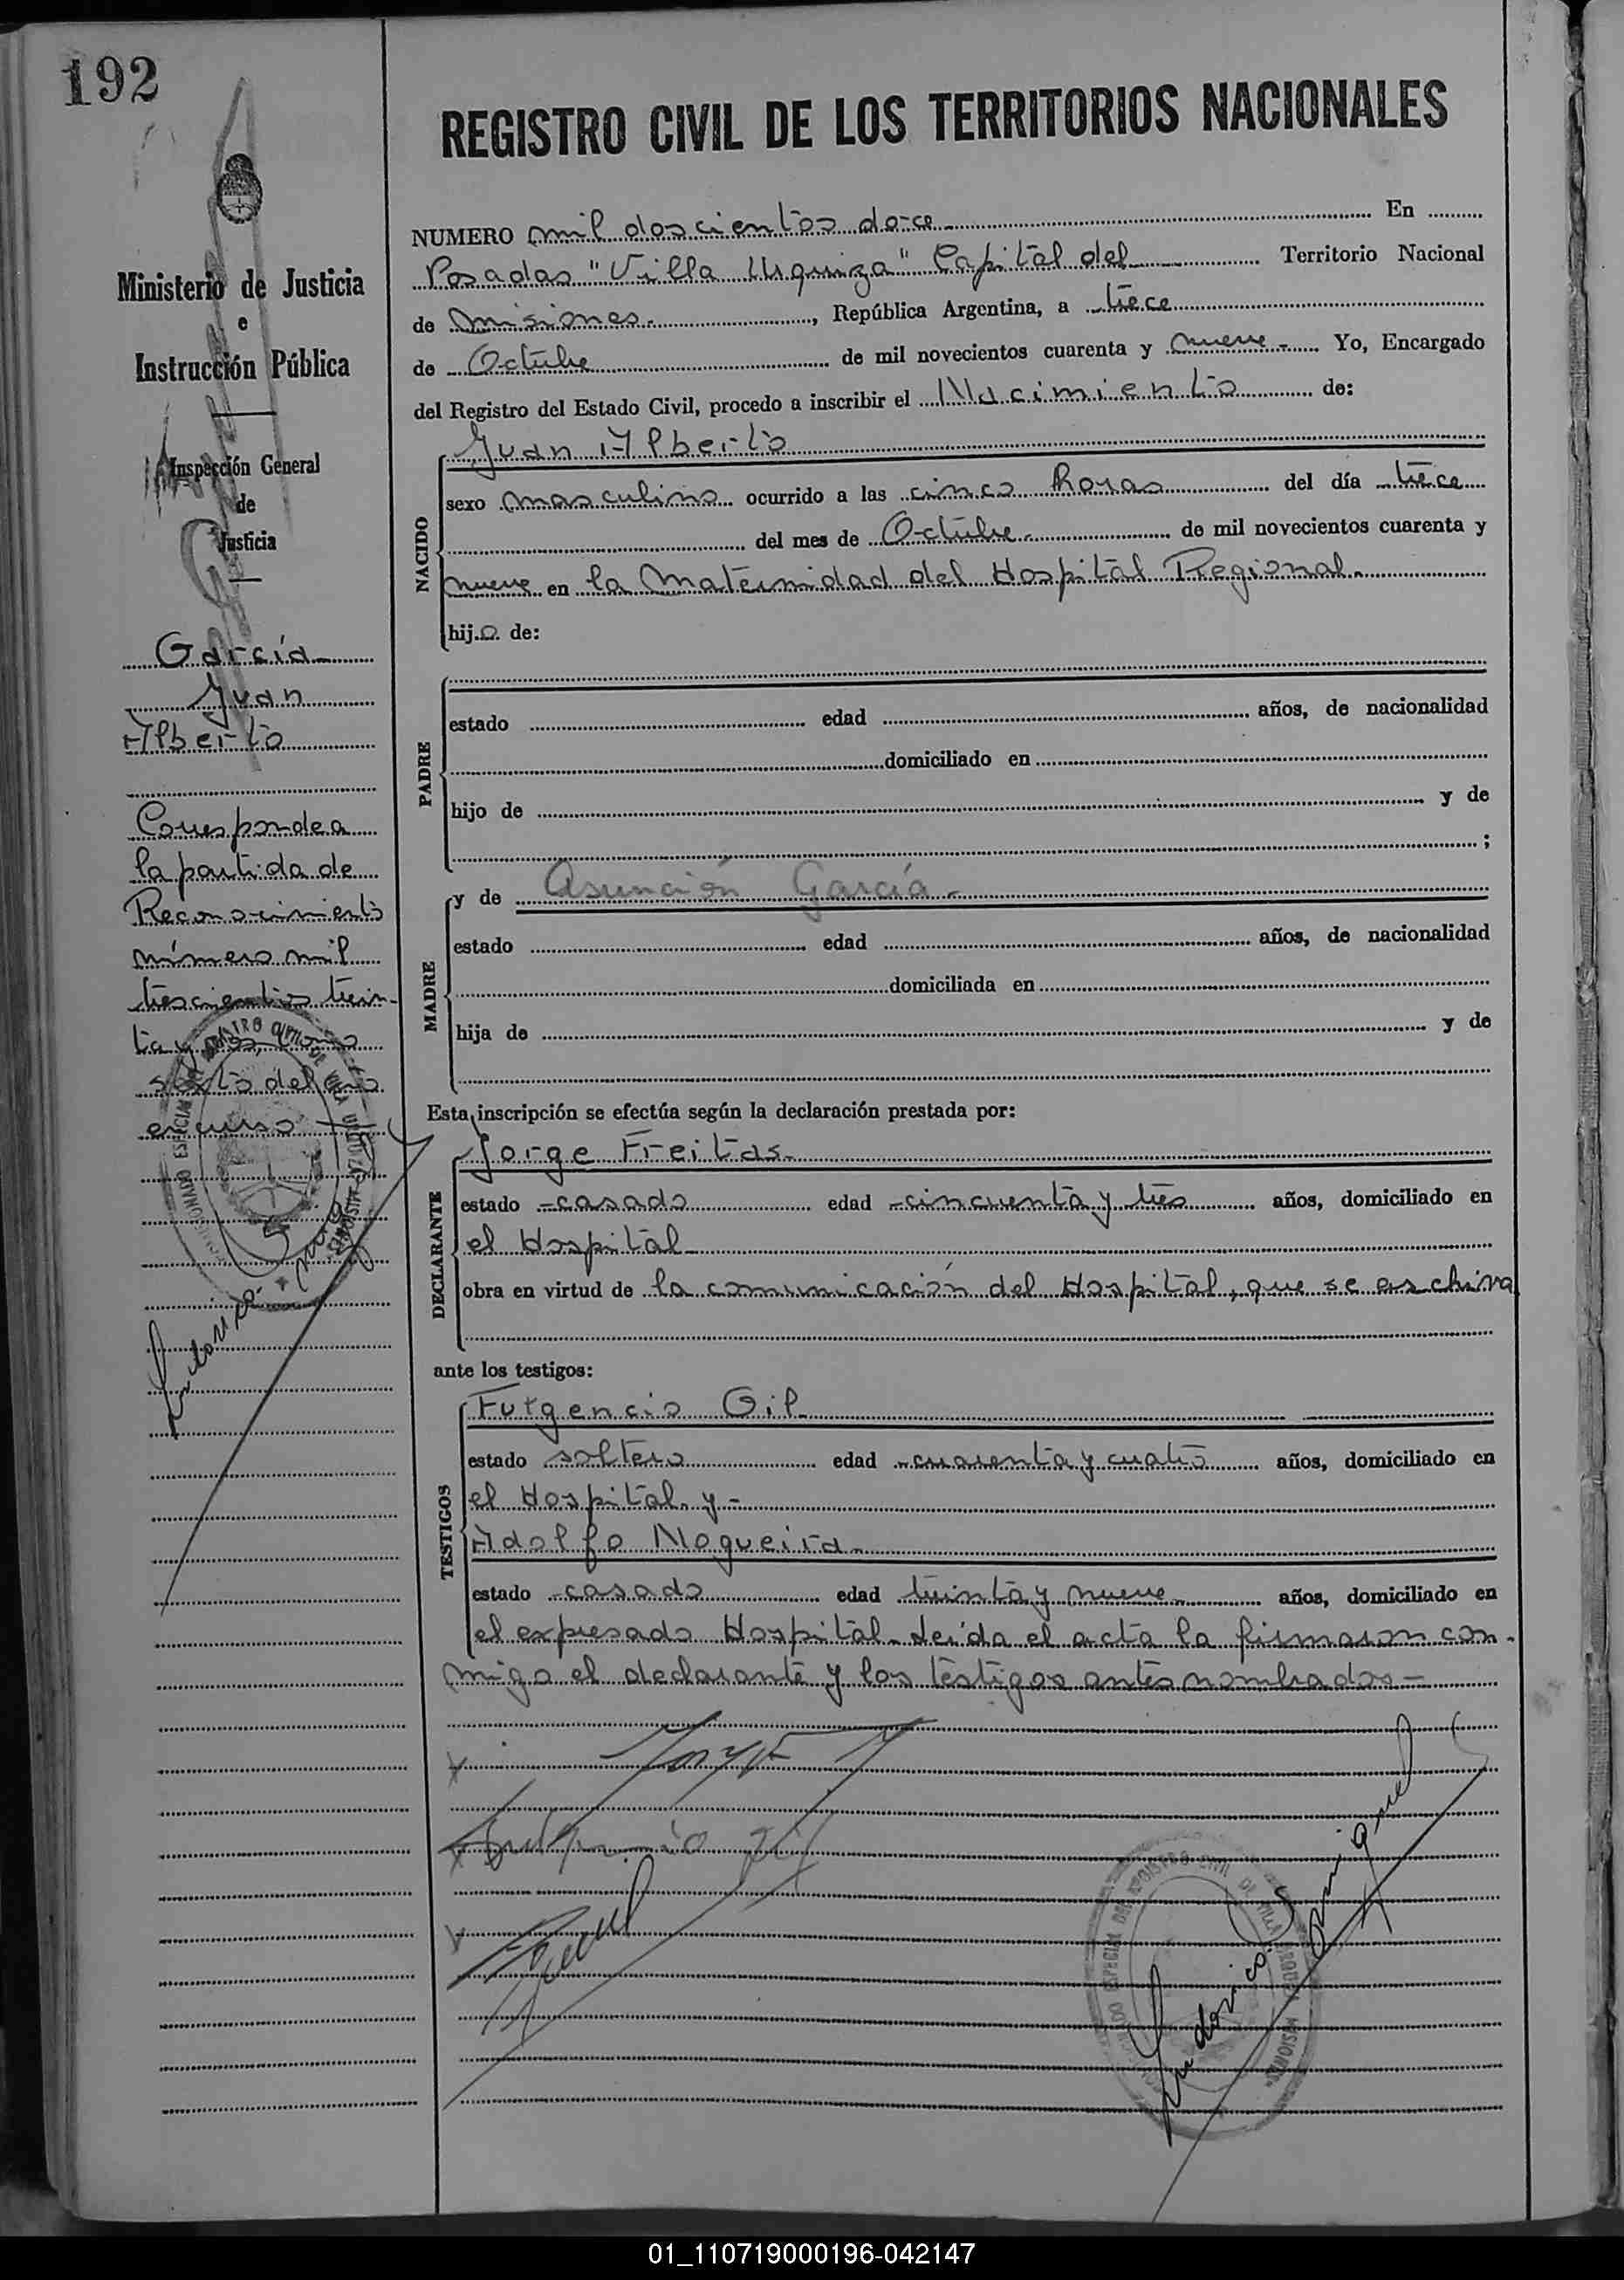 192
REGISTRO CIVIL DE LOS TERRITORIOS NACIONALES
Ministerio de Justicia
e
Instrucción Pública
Inspección General
de
Justicia
García
Juan
Alberto
Corresponde a
la partida de
Reconocimiento
número mil
trescientos trein-
ta y dos, tomo
sexto del año
en curso
NUMERO mil doscientos doce En
Posadas "Villa Urquiza" Capital del Territorio Nacional
de Misiones, República Argentina, a trece
de Octubre de mil novecientos cuarenta y nueve Yo, Encargado
del Registro del Estado Civil, procedo a inscribir el Nacimiento de:
NACIDO
Juan Alberto
sexo masculino ocurrido a las cinco horas del día trece
del mes de Octubre de mil novecientos cuarenta y
nueve en la Maternidad del Hospital Regional.
hijo de:
PADRE
estado edad años, de nacionalidad
domiciliado en
hijo de y de
;
MADRE
y de Asunción García
estado edad años, de nacionalidad
domiciliada en
hija de y de
Esta inscripción se efectúa según la declaración prestada por:
DECLARANTE
Jorge Freitas
estado casado edad cincuenta y tres años, domiciliado en
el Hospital
obra en virtud de la comunicación del Hospital, que se archiva
ante los testigos:
TESTIGOS
Fulgencio Gil
estado soltero edad cuarenta y cuatro años, domiciliado en
el Hospital y
Adolfo Nogueira
estado casado edad treinta y nueve años, domiciliado en
el expresado Hospital. Leída el acta la firmaron con-
migo el declarante y los testigos antes nombrados
01_110719000196-042147